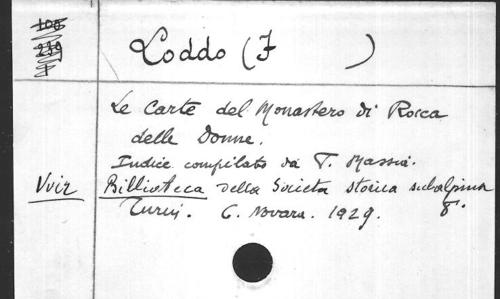 Loddo (F )
Le Carte del Monastero di Rocca
delle Donne.
Indice compilato da F. Massia.
Vvir Billioteca della Società storica subalpina
Turin. C. Novara. 1929. 8°.